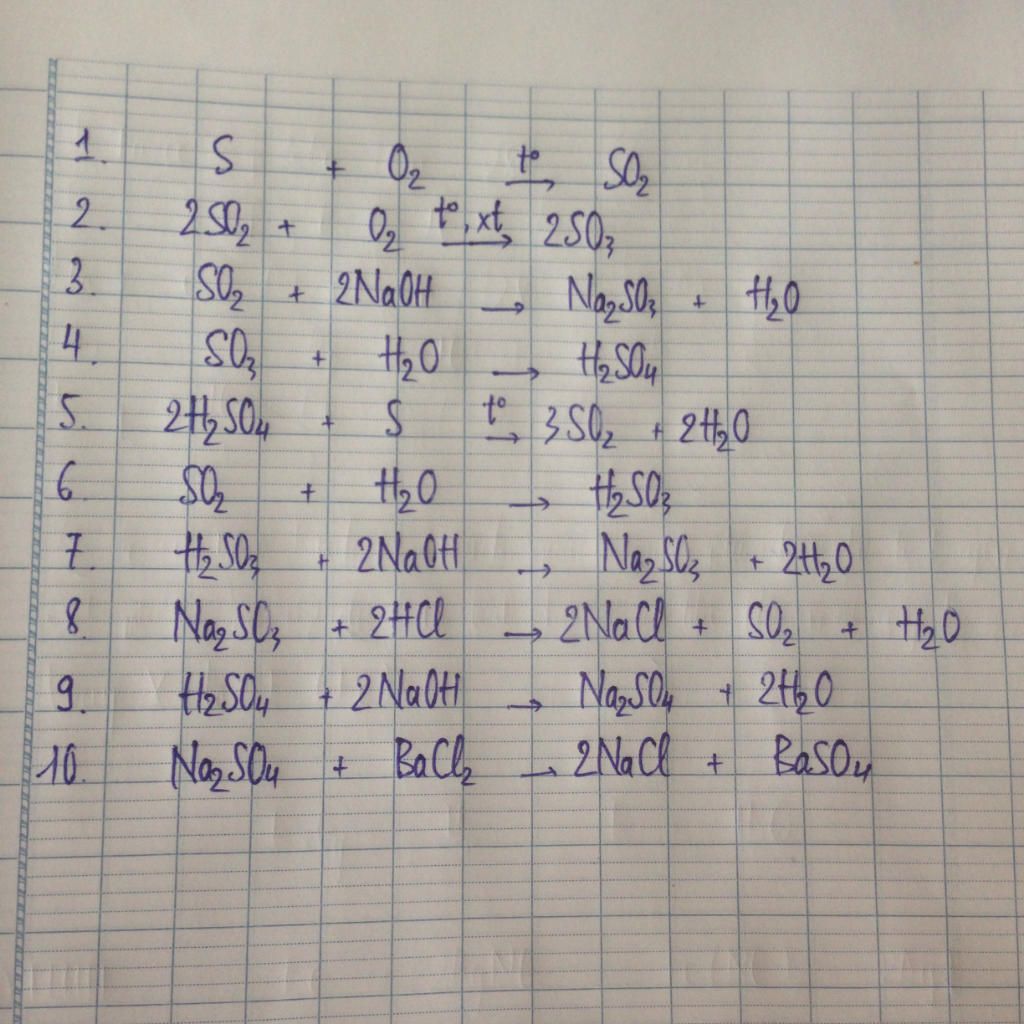 1. S + O₂ t° → SO₂
2. 2SO₂ + O₂ t°, xt → 2SO₃
3. SO₂ + 2NaOH → Na₂SO₃ + H₂O
4. SO₃ + H₂O → H₂SO₄
5. 2H₂SO₄ + S t° → 3SO₂ + 2H₂O
6. SO₂ + H₂O → H₂SO₃
7. H₂SO₃ + 2NaOH → Na₂SO₃ + 2H₂O
8. Na₂SO₃ + 2HCl → 2NaCl + SO₂ + H₂O
9. H₂SO₄ + 2NaOH → Na₂SO₄ + 2H₂O
10. Na₂SO₄ + BaCl₂ → 2NaCl + BaSO₄